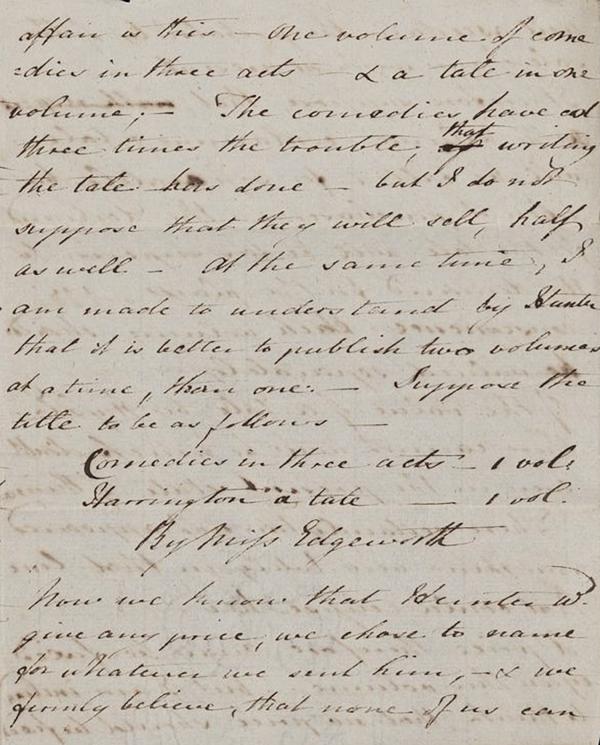 affair is this — One volume of come
=dies in three acts — & a tale in one
volume; — The comedies have cost
three times the trouble, that writing
the tale has done — but I do not
suppose that they will sell, half
as well — At the same time, I
am made to understand by Hunter
that it is better to publish two volumes
at a time, than one: — Suppose the
title to be as follows —
Comedies in three acts — 1 vol:
Harrington a tale — 1 vol:
By Miss Edgeworth
Now we know that Hunter wd.
give any price, we chose to name
for whatever we sent him, — & we
firmly believe, that none of us can